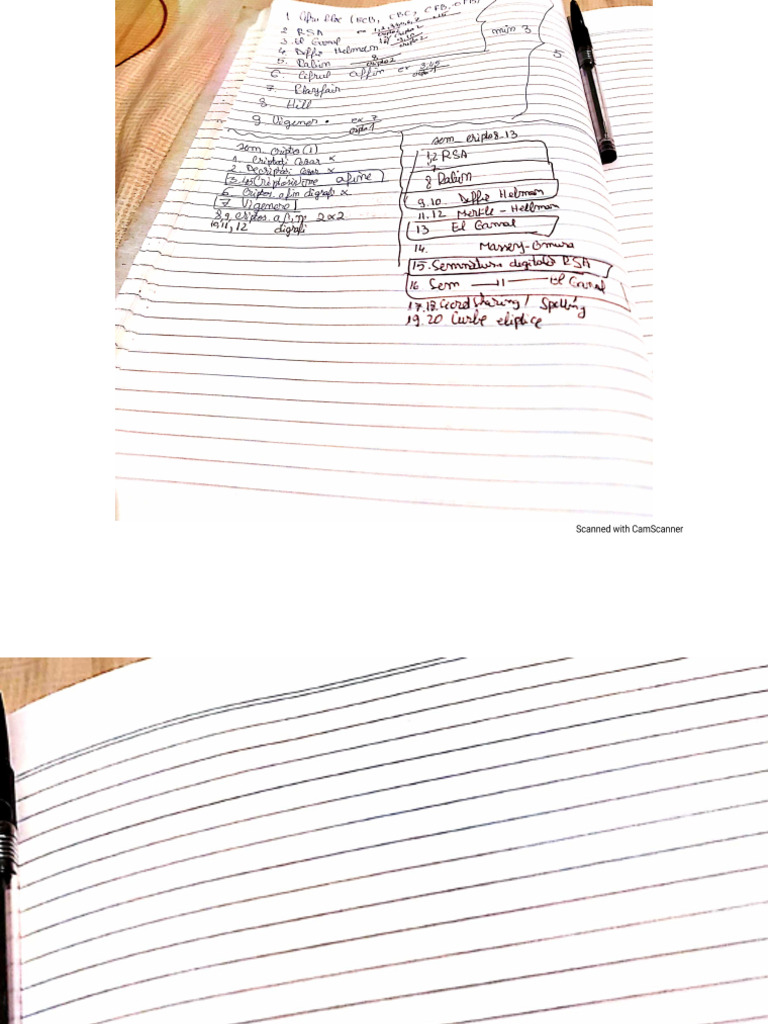 1 Cifru bloc (ECB, CBC, CFB, OFB)
2 RSA
3. El Gamal
4. Diffie Hellman
5. Rabin 8 cripto 2
min 3
5
6. Cifrul affin ex 3,4,5 cripto 1
7. Playfair
8. Hill
9 Vigener • ex 7 cripto 1
sem cripto (1)
1. Criptat Cesar x
2. Decriptat cesar x
3.4.5 Criptosisteme afine
6. Criptos. afin digrafi x
7 Vigenere
8,9. criptos. afin 2x2
10,11,12 digrafi
sem_cripto 8-13
1,2 RSA
7
8 Rabin
9.10. Diffie Helman
11.12 Merkle-Hellman
13 El Gamal
14. Massey-Omura
15. Semnatura digitala RSA
16 Sem —— 11 —— El Gamal
17.18. Secret sharing / Splitting
19.20 Curbe eliptice
Scanned with CamScanner